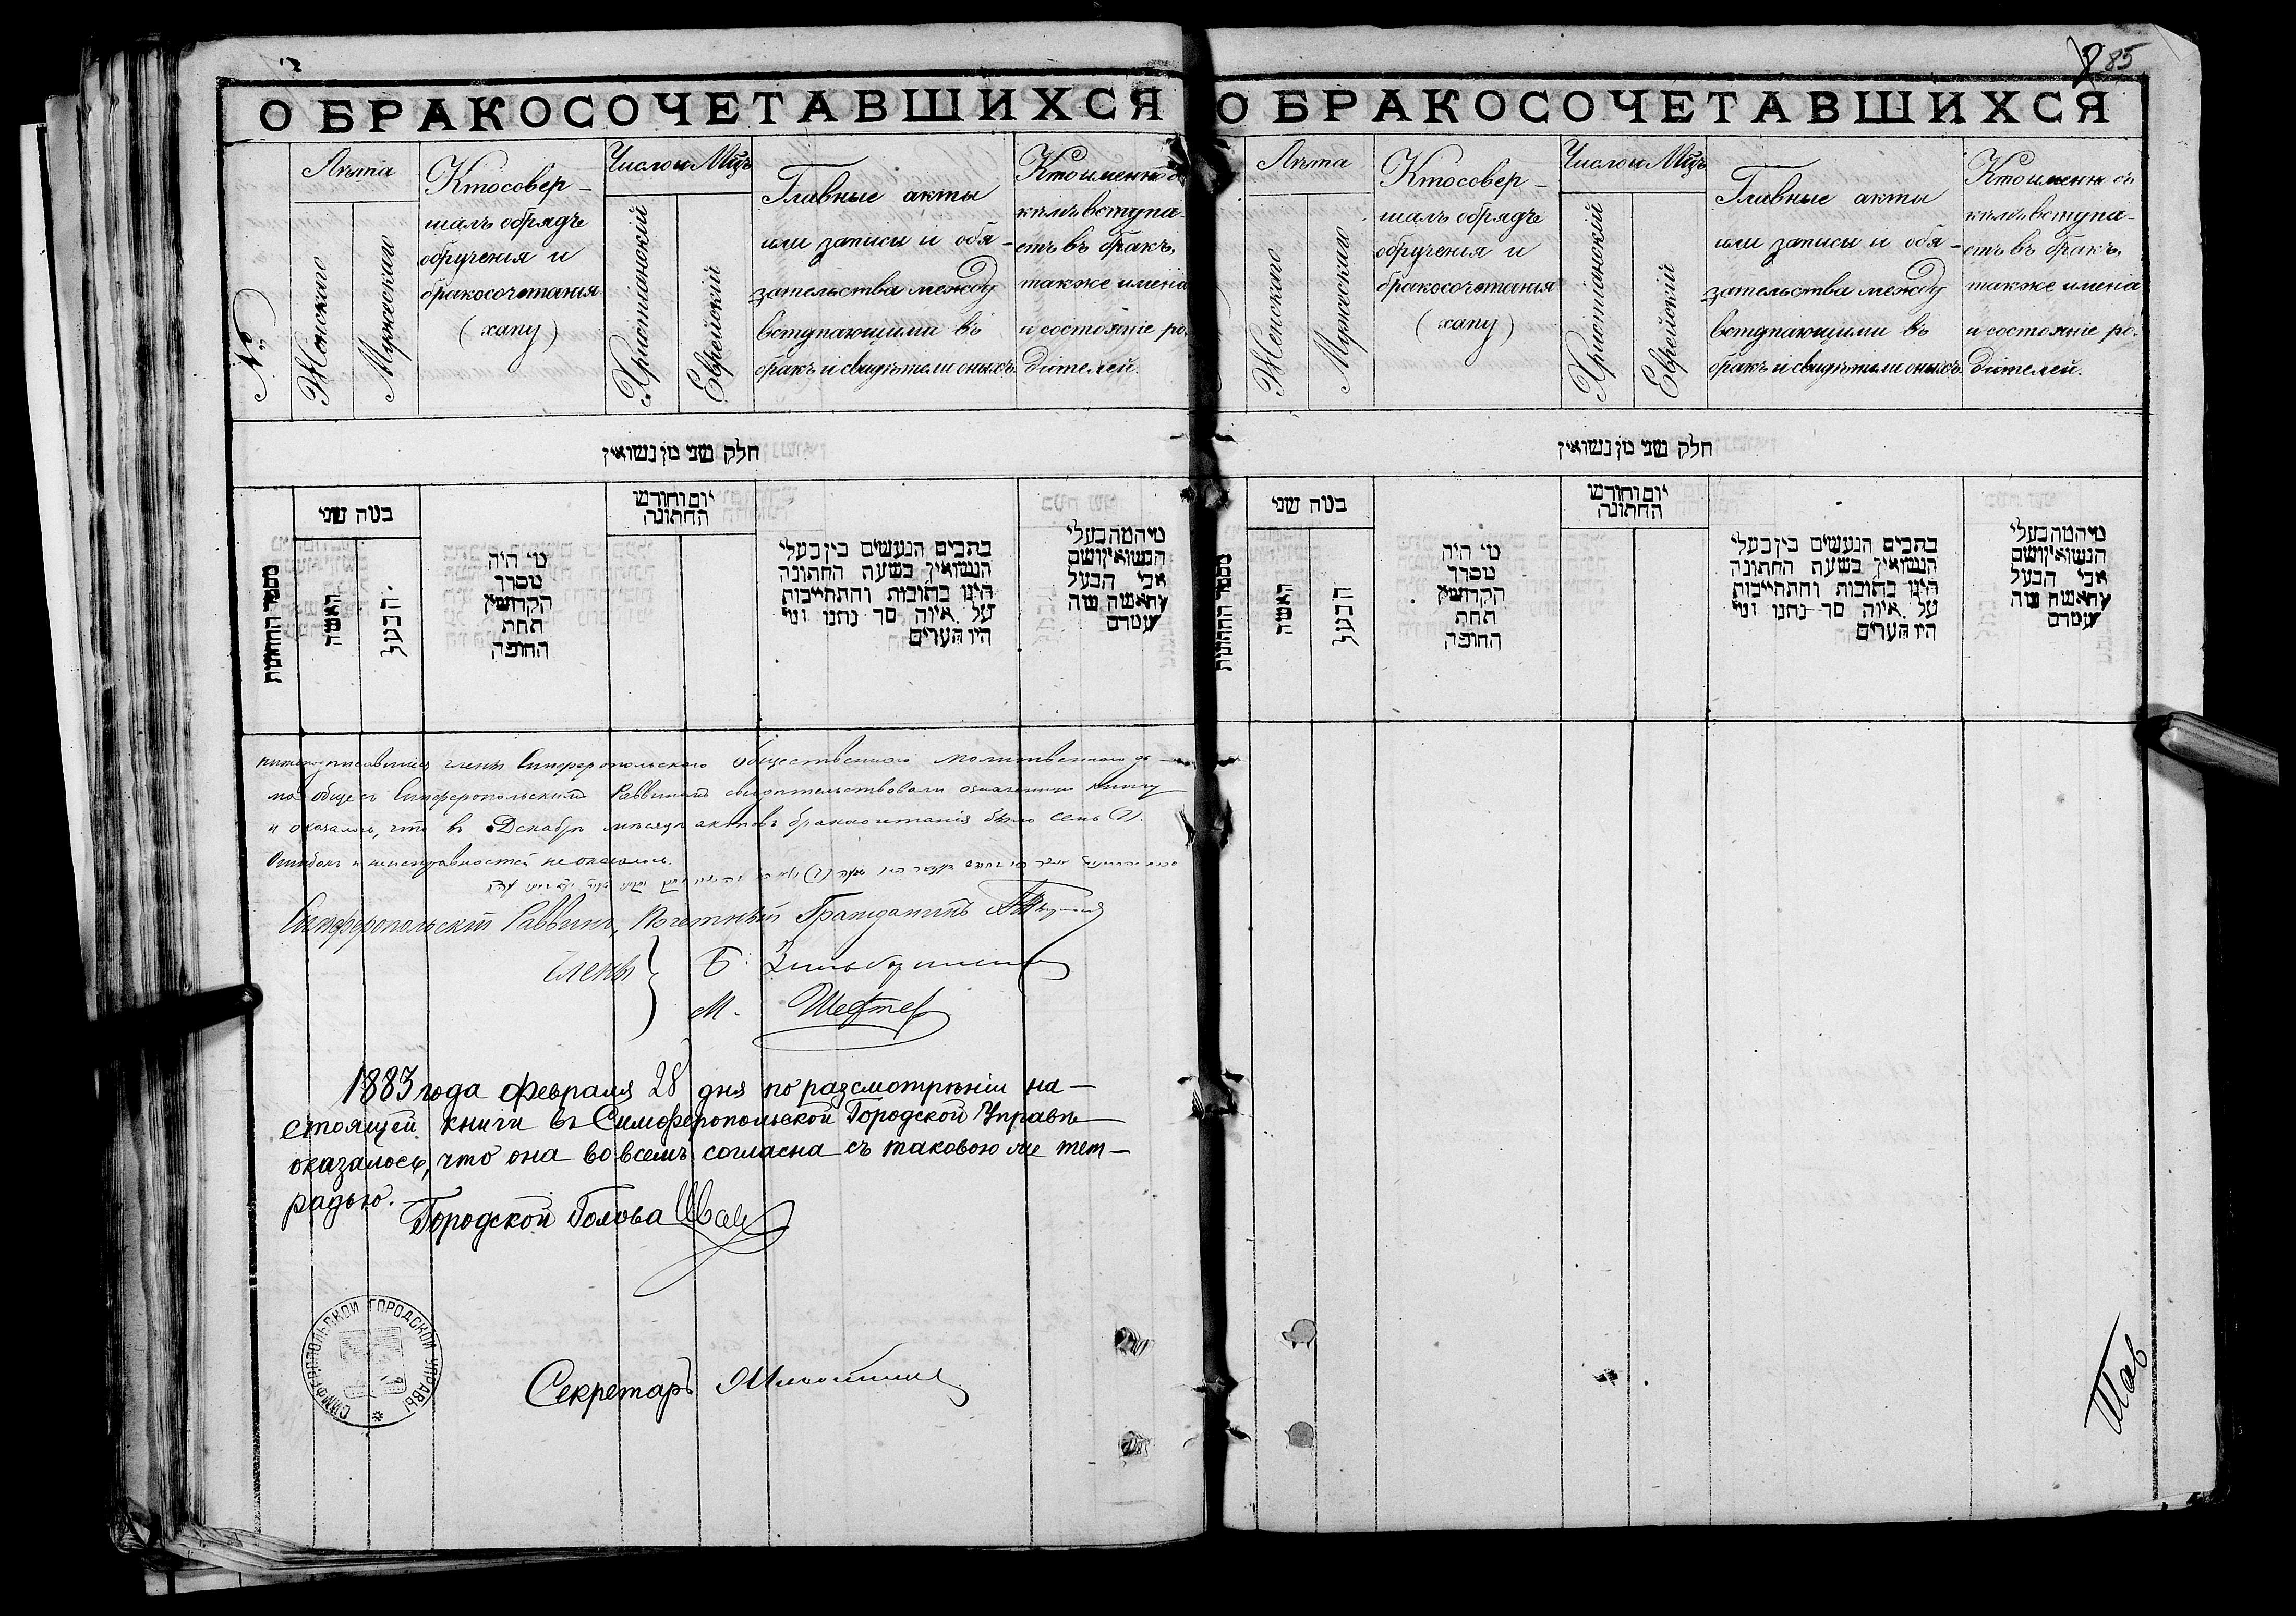 85
О БРАКОСОЧЕТАВШИХСЯ
№
Лѣта
Женскаго
Мужескаго
Кто совер-
шалъ обрядъ
обрученія и
бракосочетанія
(хапу)
Число и Мцъ
Христіанскій
Еврейскій
Главные акты
или записи и обя-
зательства между
вступающими въ
бракъ и свидѣтели оныхъ.
Кто именно съ
кѣмъ вступа-
етъ въ бракъ,
также имена
и состояніе ро-
дителей.
חלק שני מן נשואין
מספר החתונות
בטה שני
האשה
הבעל
מי היה
מסדר
הקדושין
תחת
החופה
יום וחודש
החתונה
כתבים הנעשים בין בעלי
הנשואין בשעת החתונה
היינו כתובות והתחייבות
על איזה סך נתנו ומי
היו העדים
מי המה בעלי
הנשואין ושם
אבי הבעל
והאשה ומה
מעמדם
нижеподписавшіеся члены Симферопольскаго Общественнаго молитвеннаго до-
ма обще съ Симферопольскимъ Раввиномъ свидѣтельствовали означенную книгу
и оказалось, что въ Декабрѣ мѣсяцѣ актовъ бракосочетанія было семь (7).
Ошибокъ и неисправностей не оказалось.
Симферопольскій Раввинъ, Почетный Гражданинъ
Члены
Б.
М. Шефтел
1883 года февраля 28 дня по разсмотрѣніи на-
стоящей книги въ Симферопольской Городской Управѣ
оказалось, что она во всемъ согласна съ таковою же тет-
радью.
Городской Голова
СИМФЕРОПОЛЬСКОЙ ГОРОДСКОЙ УПРАВЫ
Секретарь
О БРАКОСОЧЕТАВШИХСЯ
Лѣта
Женскаго
Мужескаго
Кто совер-
шалъ обрядъ
обрученія и
бракосочетанія
(хапу)
Число и Мцъ
Христіанскій
Еврейскій
Главные акты
или записи и обя-
зательства между
вступающими въ
бракъ и свидѣтели оныхъ.
Кто именно съ
кѣмъ вступа-
етъ въ бракъ,
также имена
и состояніе ро-
дителей.
חלק שני מן נשואין
מספר החתונות
בטה שני
האשה
הבעל
מי היה
מסדר
הקדושין
תחת
החופה
יום וחודש
החתונה
כתבים הנעשים בין בעלי
הנשואין בשעת החתונה
היינו כתובות והתחייבות
על איזה סך נתנו ומי
היו העדים
מי המה בעלי
הנשואין ושם
אבי הבעל
והאשה ומה
מעמדם
Тав